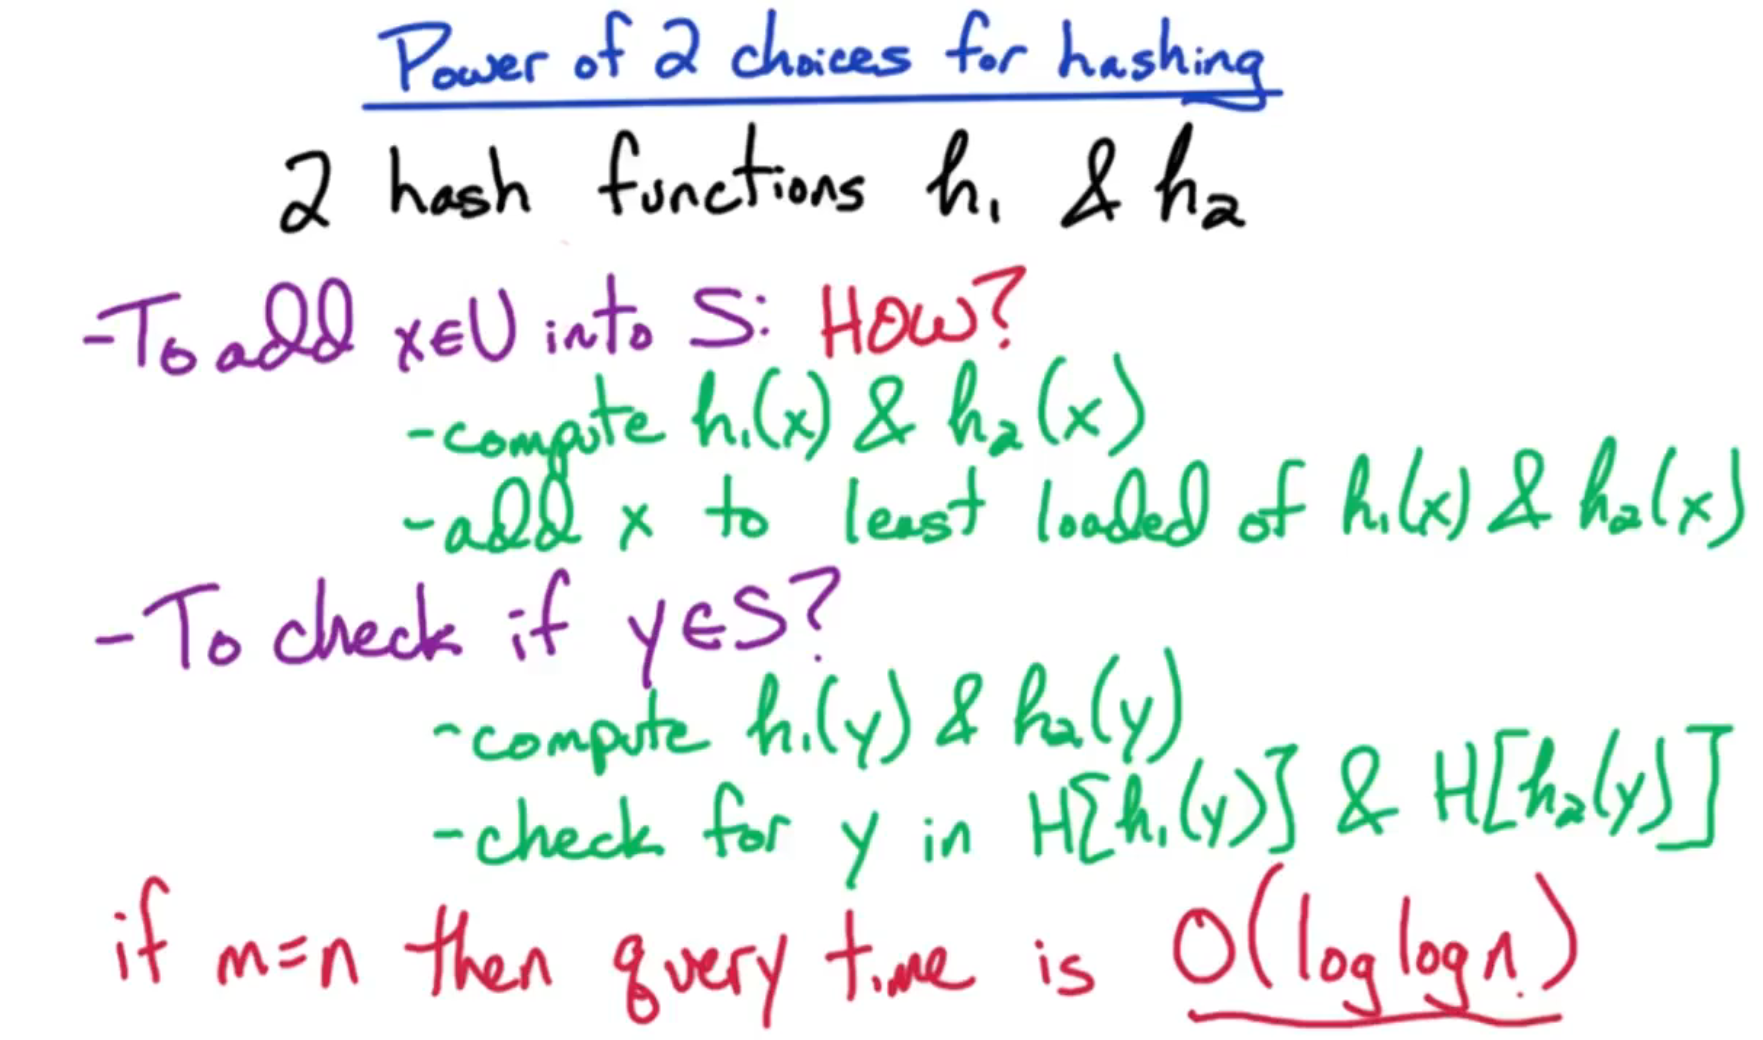 Power of 2 choices for hashing
2 hash functions h₁ & h₂
-To add x∈U into S: How?
-compute h₁(x) & h₂(x)
-add x to least loaded of h₁(x) & h₂(x)
-To check if y∈S?
-compute h₁(y) & h₂(y)
-check for y in H[h₁(y)] & H[h₂(y)]
if m=n then query time is O(log log n)